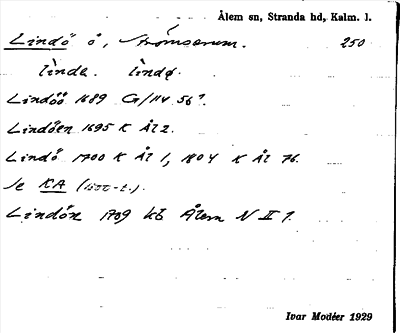 Ålem sn, Stranda hd, Kalm. l.
Lindö ö, Strömserum. 250
linde. lindø.
Lindöö 1689 G/114 56?.
Lindöen 1695 K Ål 2.
Lindö 1700 K Ål 1, 1804 K Ål 76.
Se KA (1500-t.).
Lindön 1789 kb Ålem N II 1.
Ivar Modéer 1929